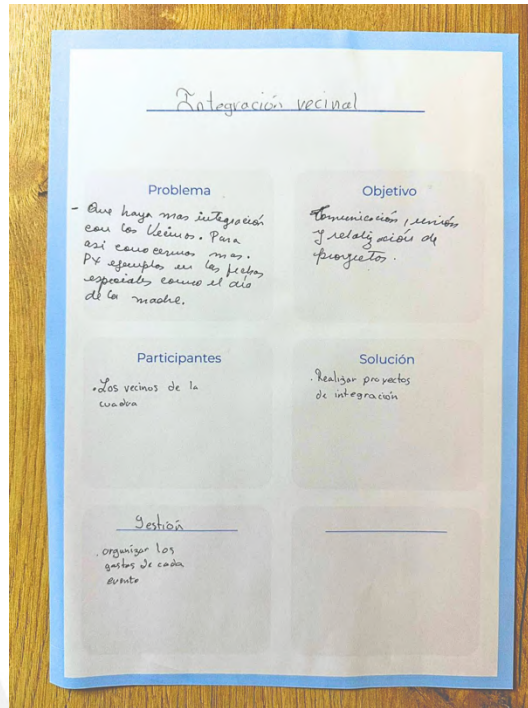 Integración vecinal
Problema
- Que haya mas integración
con los Vecinos. Para
asi conocernos mas.
Px ejemplos en las fechas
especiales como el dia
de la madre.
Objetivo
Comunicación, unión
y de
proyectos.
Participantes
. Los vecinos de la
cuadra
Solución
. Realizar proyectos
de integración
Gestión
. organizar los
gastos de cada
evento